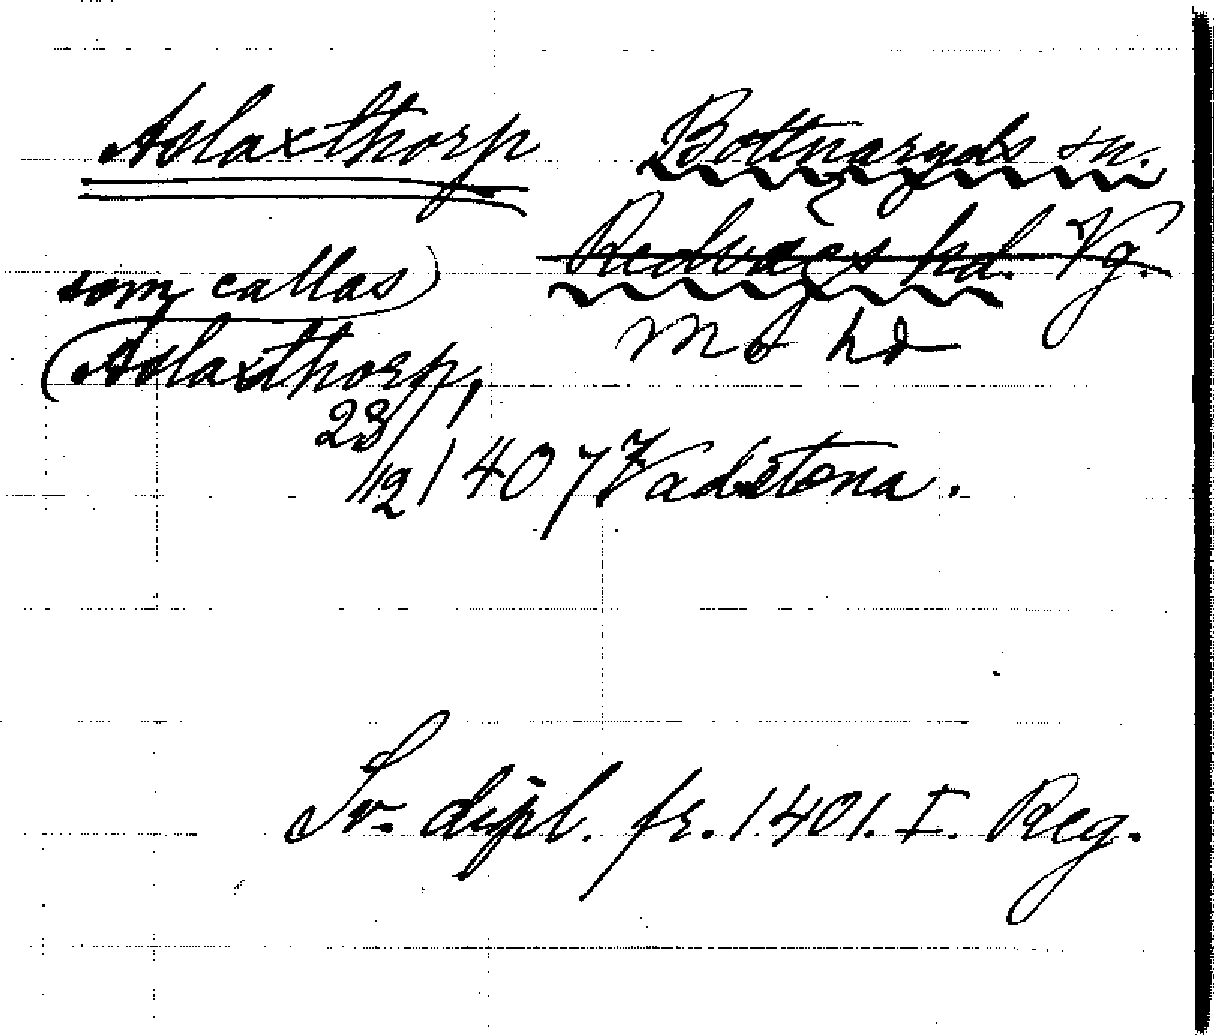 Aslaxthorp Bottnaryds sn.
Redvägs hd. Vg.
som callas
Mo hd
(Aslaxthorp,
23/12 1407 Vadstena.
Sv. dipl. fr. 1401. I. Reg.